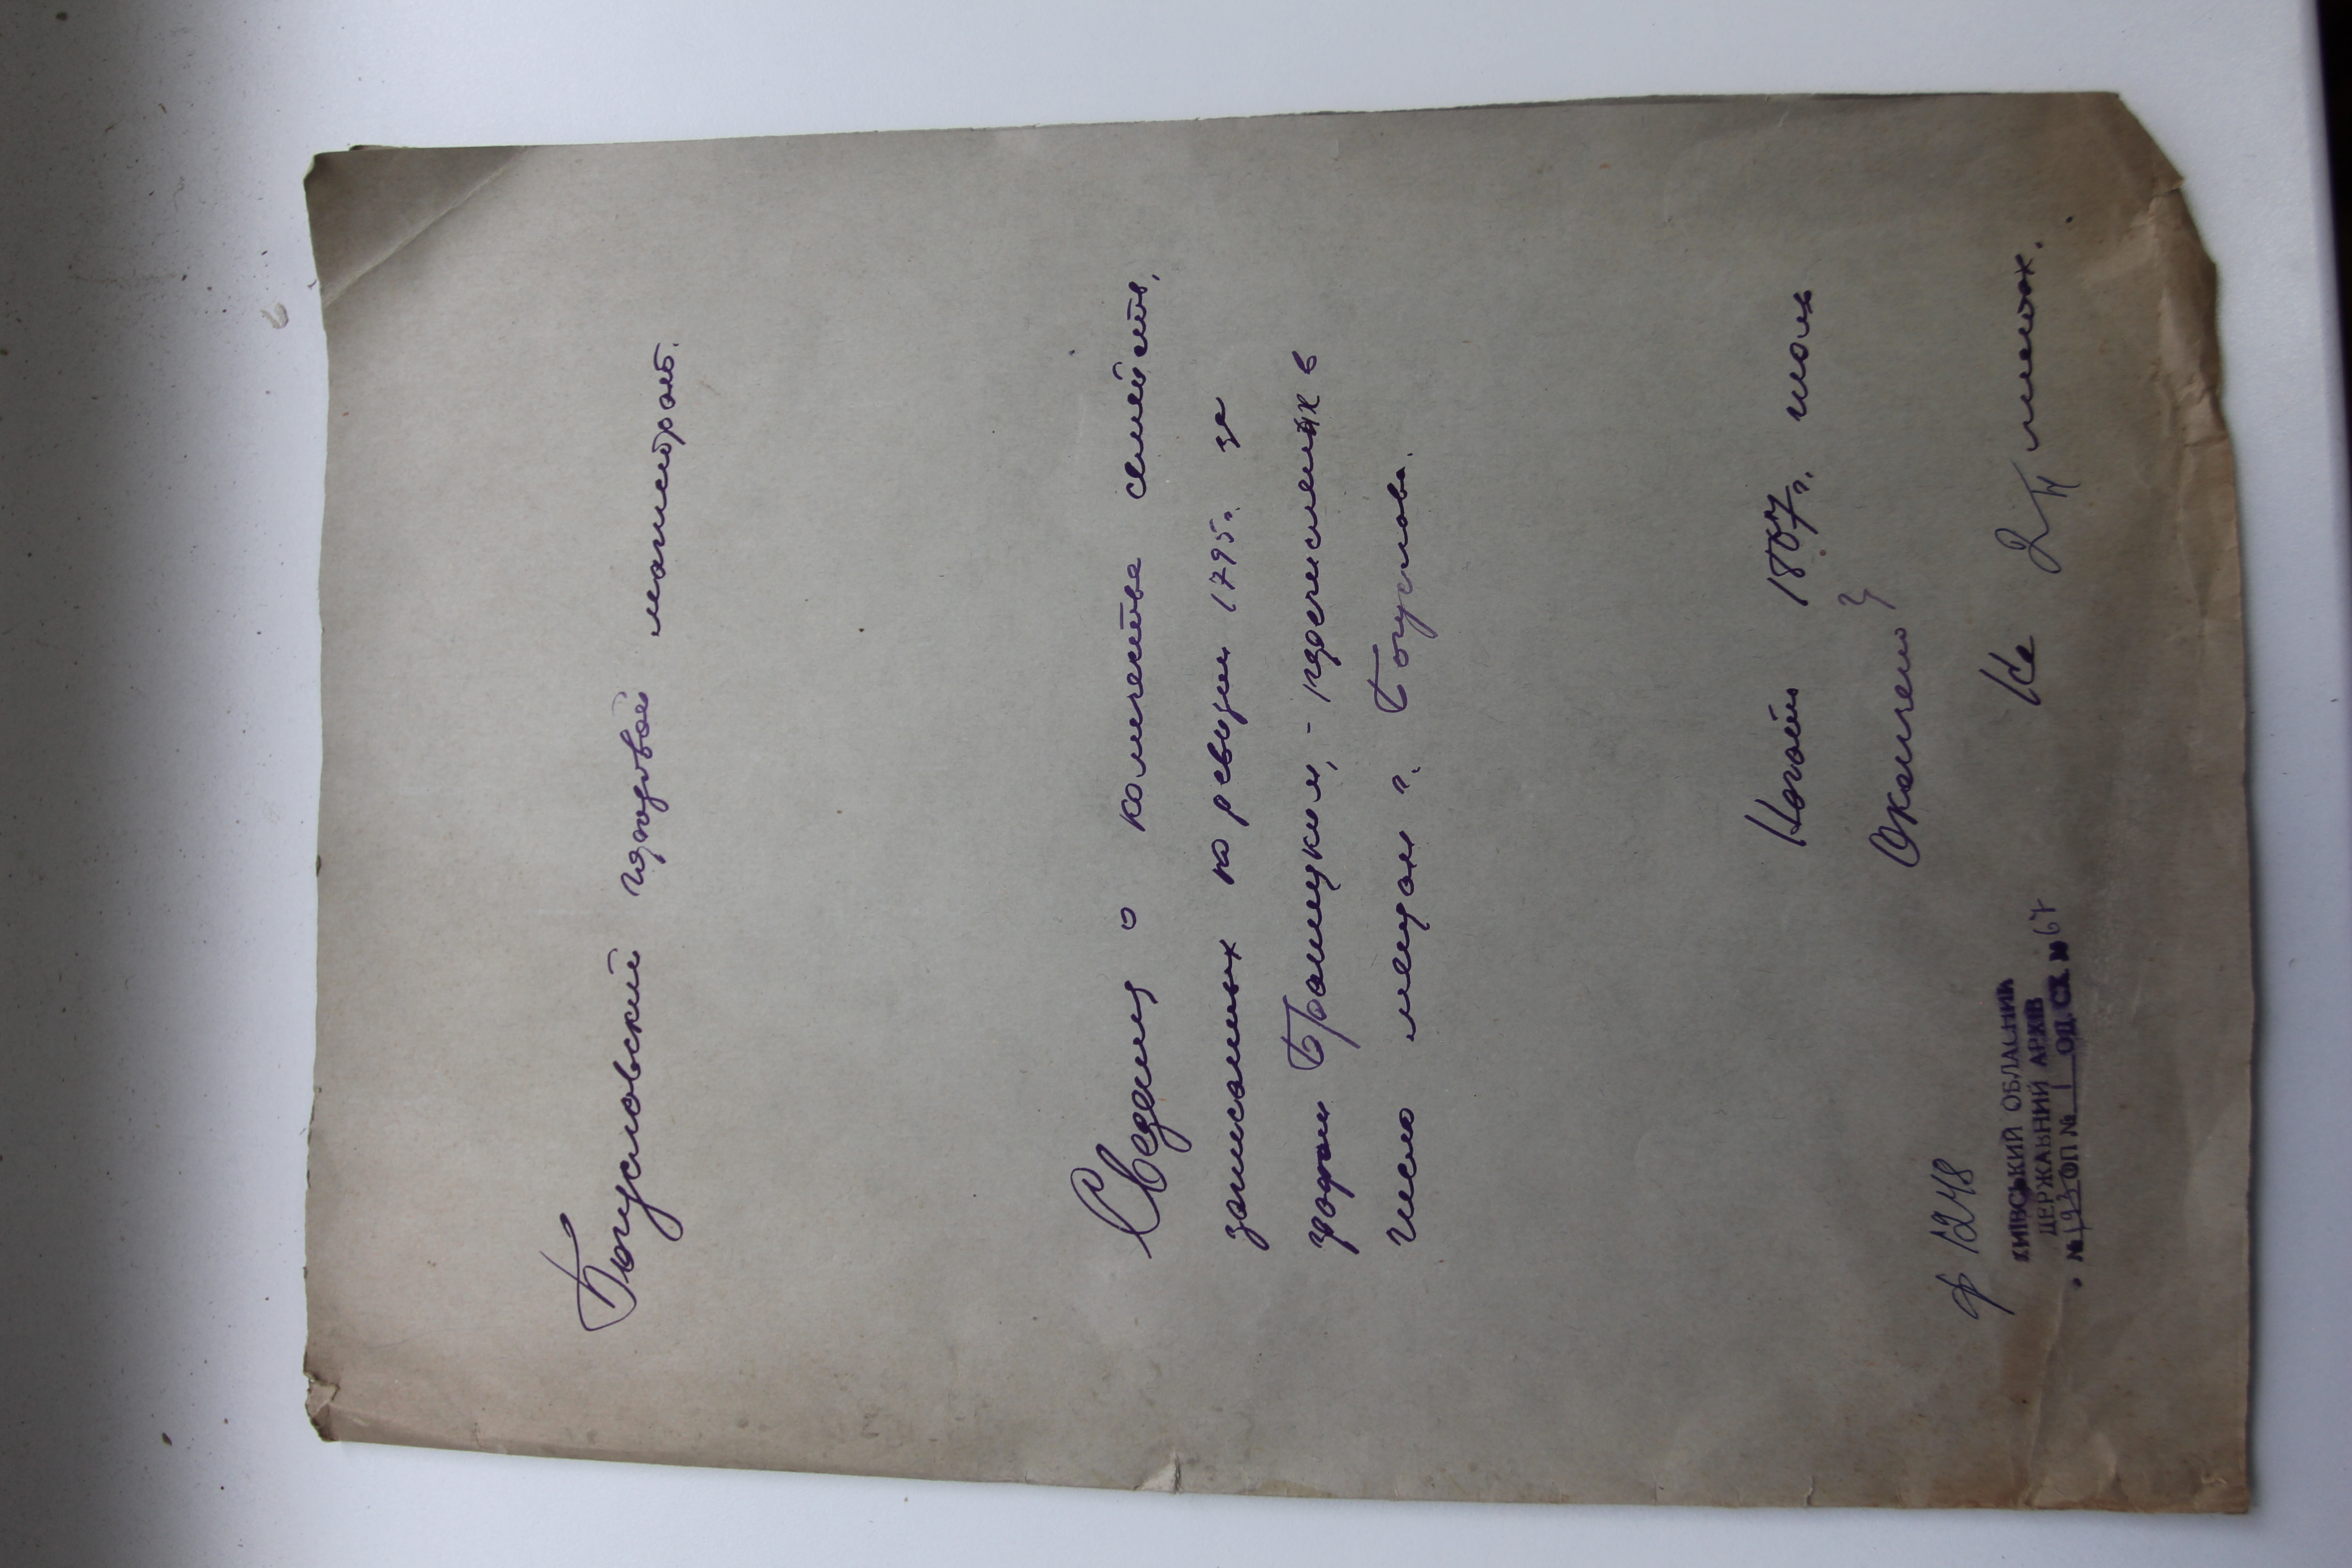 Богуславский городовой магистрат.
Сведения о количестве семейств,
записанных по ревизии 1795 г. за
графом Браницким, - перечисленных в
число мещан г. Богуслава.
Начат 1807 г. июль
Окончено
На 2 листах.
ф 1248
КИЇВСЬКИЙ ОБЛАСНИЙ
ДЕРЖАВНИЙ АРХІВ
№ 193 ОП № 1 ОД. СХ. № 67